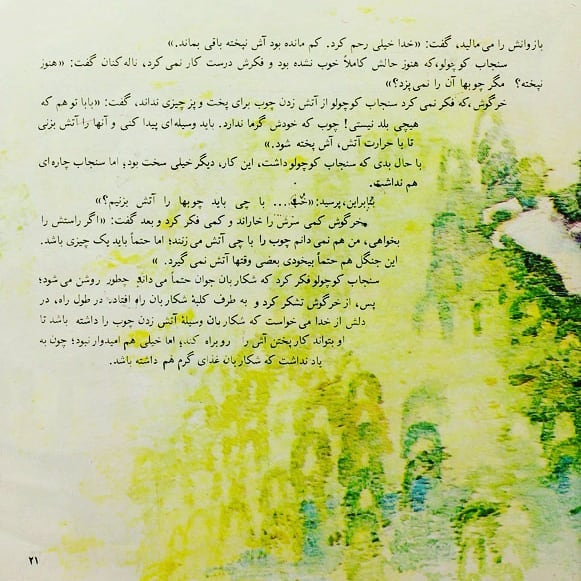 بازوانش را می مالید، گفت: «خدا خیلی رحم کرد. کم مانده بود آش نپخته باقی بماند.»
سنجاب کوچولو،که هنوز حالش کاملاً خوب نشده بود و فکرش درست کار نمی کرد، ناله کنان گفت: «هنوز
نپخته؟ مگر چوبها آن را نمی پزد؟»
خرگوش،که فکر نمی کرد سنجاب کوچولو از آتش زدن چوب برای پخت و پز چیزی نداند، گفت: «بابا تو هم که
هیچی بلد نیستی! چوب که خودش گرما ندارد. باید وسیله‌ای پیدا کنی و آنها را آتش بزنی
تا با حرارت آتش، آش پخته شود.»
با حال بدی که سنجاب کوچولو داشت، این کار، دیگر خیلی سخت بود؛ اما سنجاب چاره ای
هم نداشت.
بنابراین،پرسید: «خُب... با چی باید چوبها را آتش بزنیم؟»
خرگوش کمی سرش را خاراند و کمی فکر کرد و بعد گفت: «اگر راستش را
بخواهی، من هم نمی دانم چوب را با چی آتش می زنند؛ اما حتماً باید یک چیزی باشد.
این جنگل هم حتماً بیخودی بعضی وقتها آتش نمی گیرد. »
سنجاب کوچولو فکر کرد که شکاربان جوان حتماً می داند چطور روشن می شود؛
پس، از خرگوش تشکر کرد و به طرف کلبهٔ شکاربان راه افتاد. در طول راه، در
دلش از خدا می خواست که شکاربان وسیلهٔ آتش زدن چوب را داشته باشد تا
او بتواند کار پختن آش را روبراه کند؛ اما خیلی هم امیدوار نبود؛ چون به
یاد نداشت که شکاربان غذای گرم هم داشته باشد.
۲۱